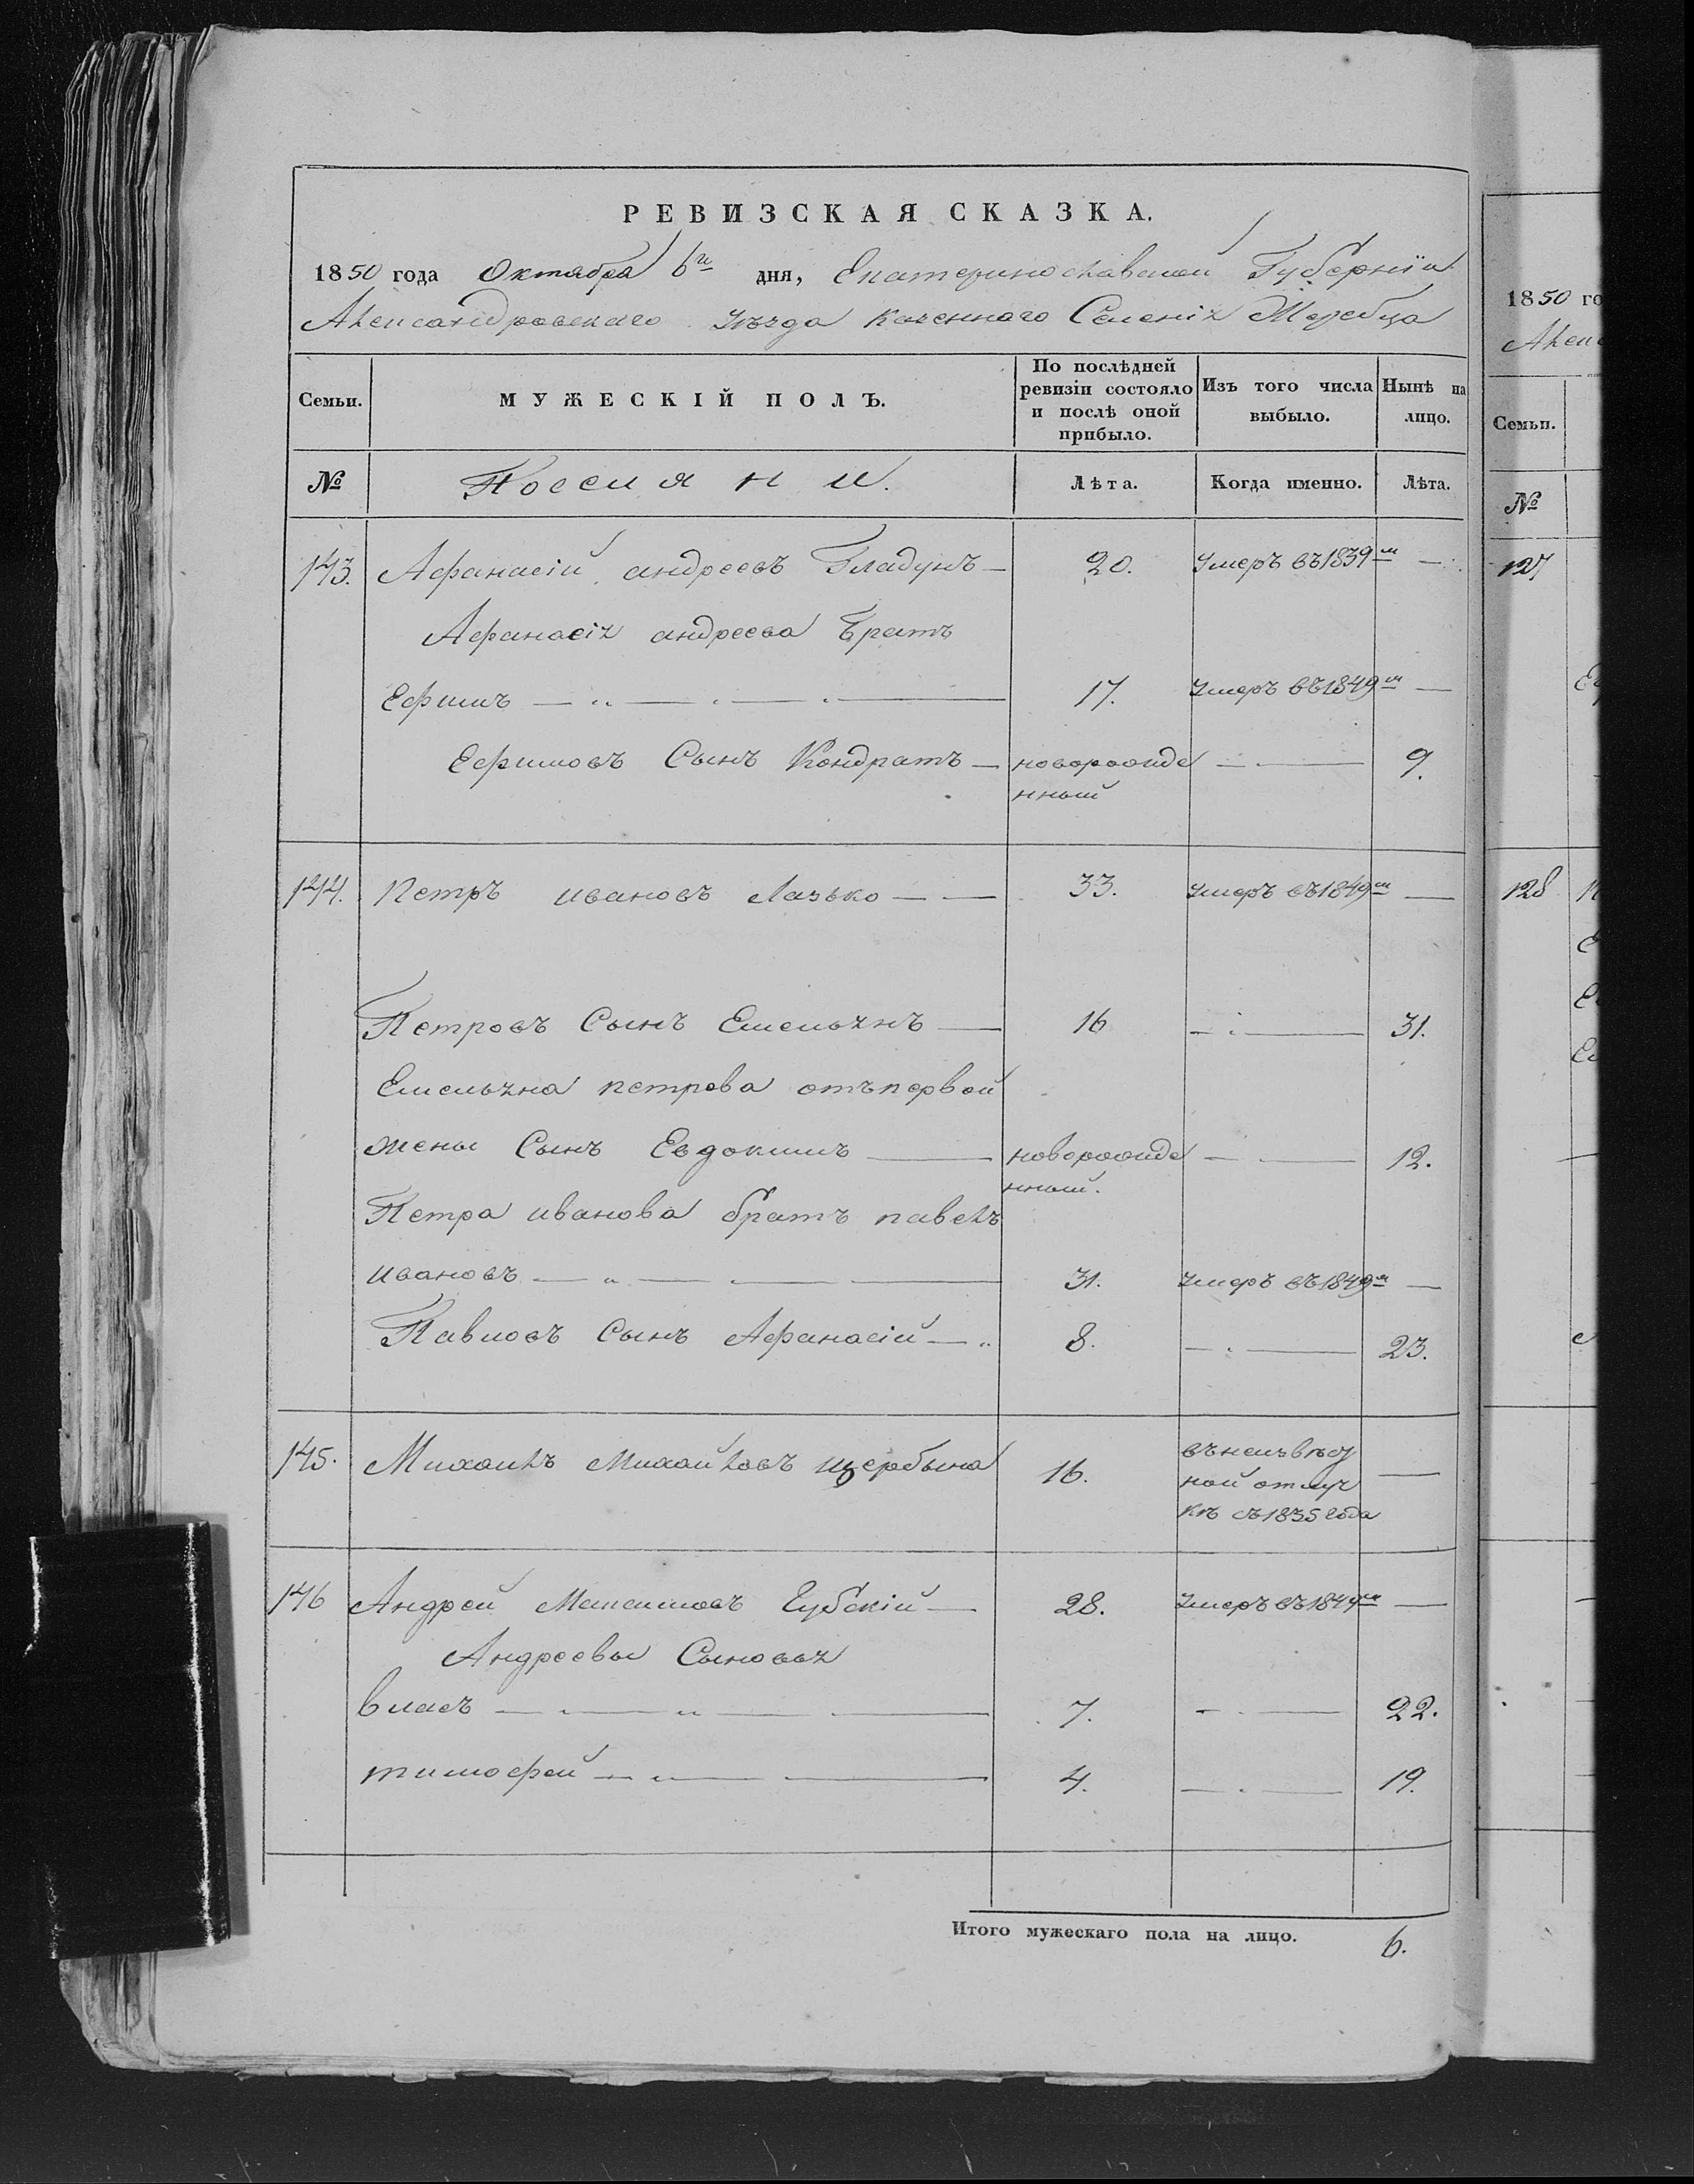 РЕВИЗСКАЯ СКАЗКА.
1850 года Октября 6го дня, Екатеринославской Губерніи
Александровскаго Уѣзда Казеннаго Селенія Жеребца
Семьи. МУЖЕСКІЙ ПОЛЪ. По послѣдней ревизіи состояло и послѣ оной прибыло. Изъ того числа выбыло. Нынѣ на лицо.
№ Лѣта. Когда именно. Лѣта.
143. Афанасій андреевъ Гладунъ — 20. Умеръ въ 1839м —
Афанасія андреева Братъ
Ефимъ — 17. Умеръ въ 1849м —
Ефимовъ Сынъ Кондратъ — новорожде — 9.
нный
144. Петръ ивановъ Лазько — 33. Умеръ въ 1849м —
Петровъ Сынъ Емельянъ — 16 — 31.
Емельяна петрова отъ первой
жены Сынъ Евдокимъ — новорожде — 12.
нный.
Петра иванова братъ павелъ
ивановъ — 31. Умеръ въ 1849м —
Павловъ Сынъ Афанасій — 8. — 23.
145. Михаилъ Михайловъ щербына 16. въ неизвѣст —
ной отлуч
кѣ съ 1835 года
146 Андрей Максимовъ Губскій — 28. Умеръ въ 1844м —
Андреевы Сыновья
власъ — 7. — 22.
тимофей — 4. — 19.
Итого мужескаго пола на лицо. 6.
1850 го
Алек
Семьи.
№
127
128